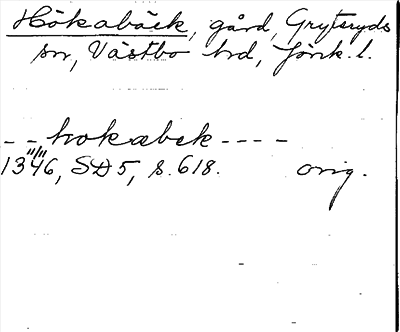 Hökabäck, gård, Grytsryds
sn, Västbo hd, Jönk. l.
- - hokabek - - - -
13 11/11 46, SD 5, s. 618. orig.